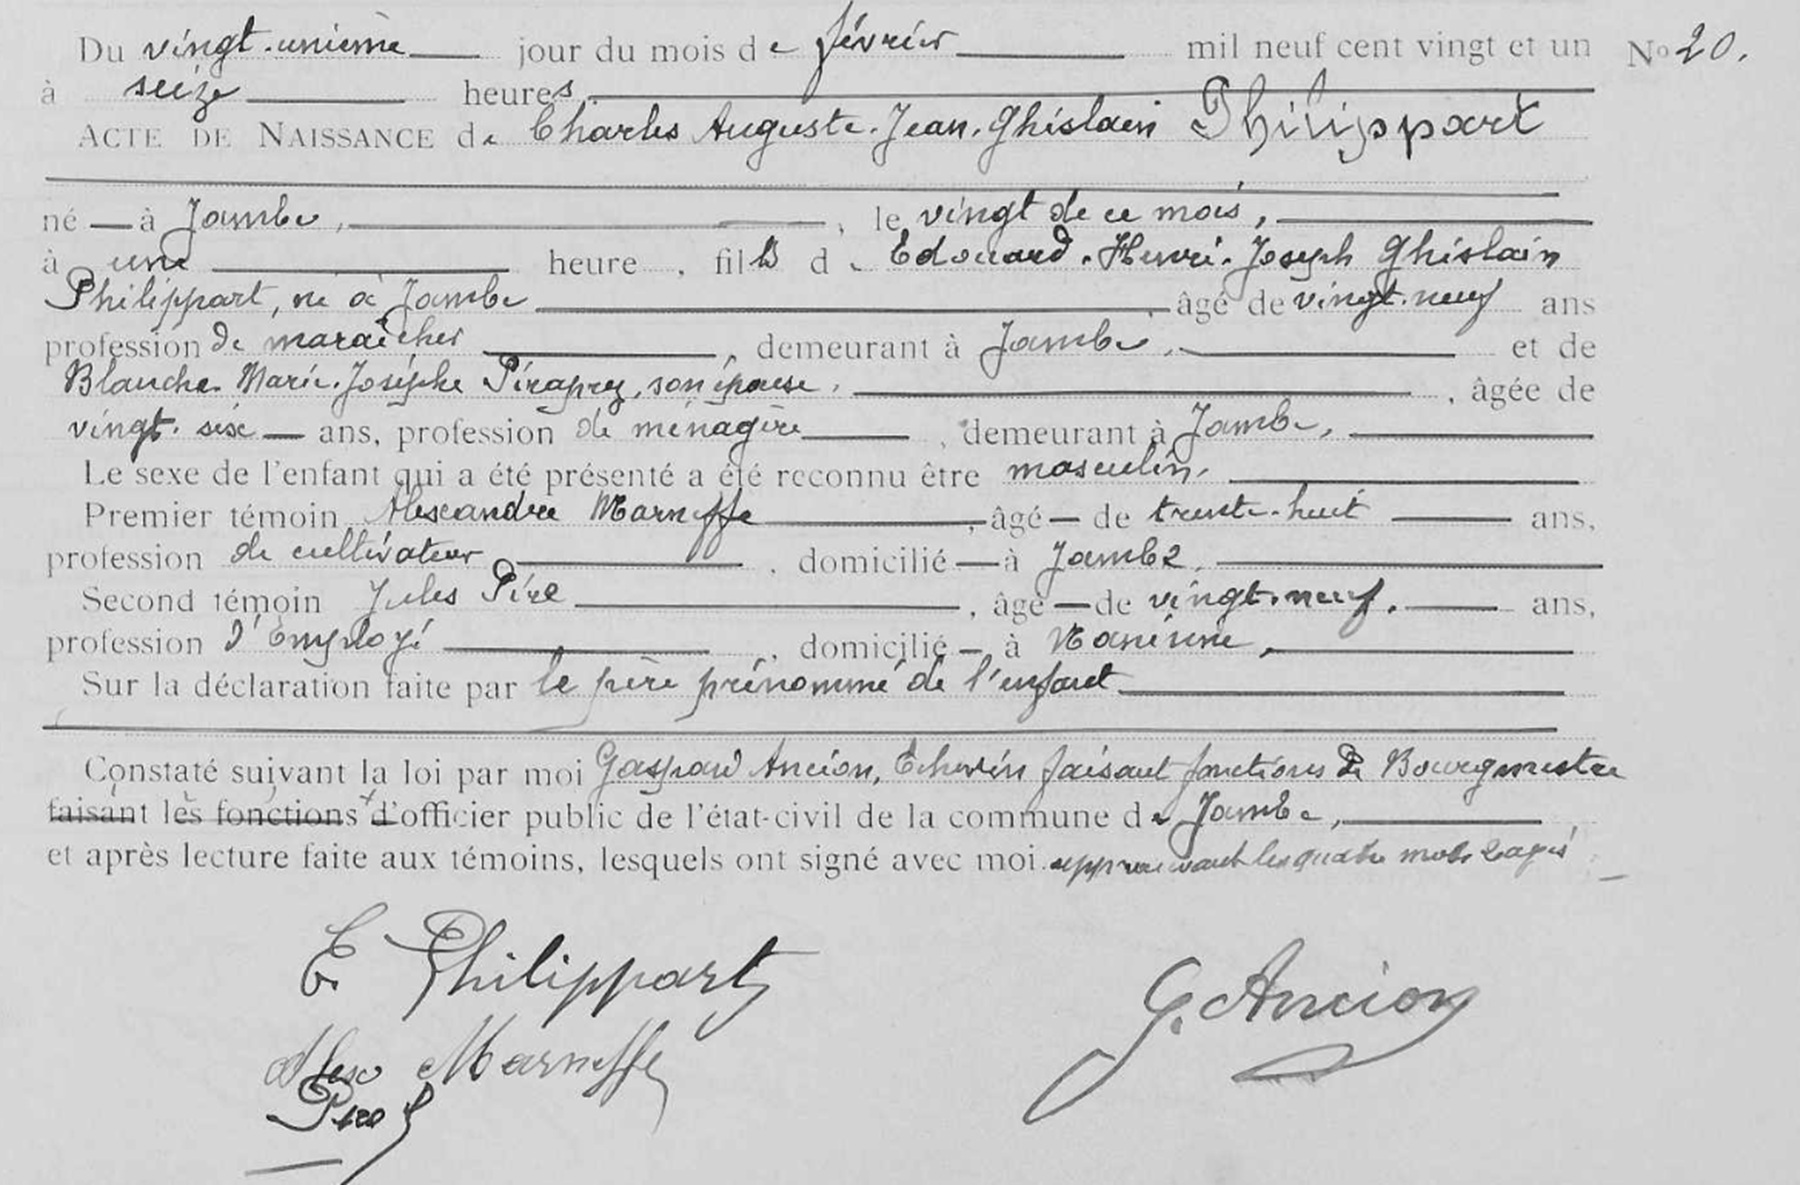 Du vingt-unième jour du mois de février mil neuf cent vingt et un No 20.
à seize heures,
ACTE DE NAISSANCE de Charles Auguste-Jean-Ghislain Philippart
né — à Jambe, , le vingt de ce mois,
à une heure , fils de Edouard-Henri-Joseph Ghislain
Philippart, né à Jambe âgé de vingt-neuf ans
profession de maraîcher , demeurant à Jambe, et de
Blanche Marie-Josèphe Piraprez, son épouse, , âgée de
vingt-six — ans, profession de ménagère , demeurant à Jambe,
Le sexe de l'enfant qui a été présenté a été reconnu être masculin,
Premier témoin Alexandre Marneffe , âgé — de trente-huit ans,
profession de cultivateur , domicilié — à Jambe,
Second témoin Jules Pire , âgé — de vingt-neuf, ans,
profession d'Employé , domicilié — à Naninne,
Sur la déclaration faite par le père prénommé de l'enfant
Constaté suivant la loi par moi Gaspard Ancion, Echevin faisant fonctions de Bourgmestre
faisant les fonctions d'officier public de l'état-civil de la commune de Jambe,
et après lecture faite aux témoins, lesquels ont signé avec moi approuvant les quatre mots rayés
E. Philippart
G. Ancion
Alex Marneffe
Pire J